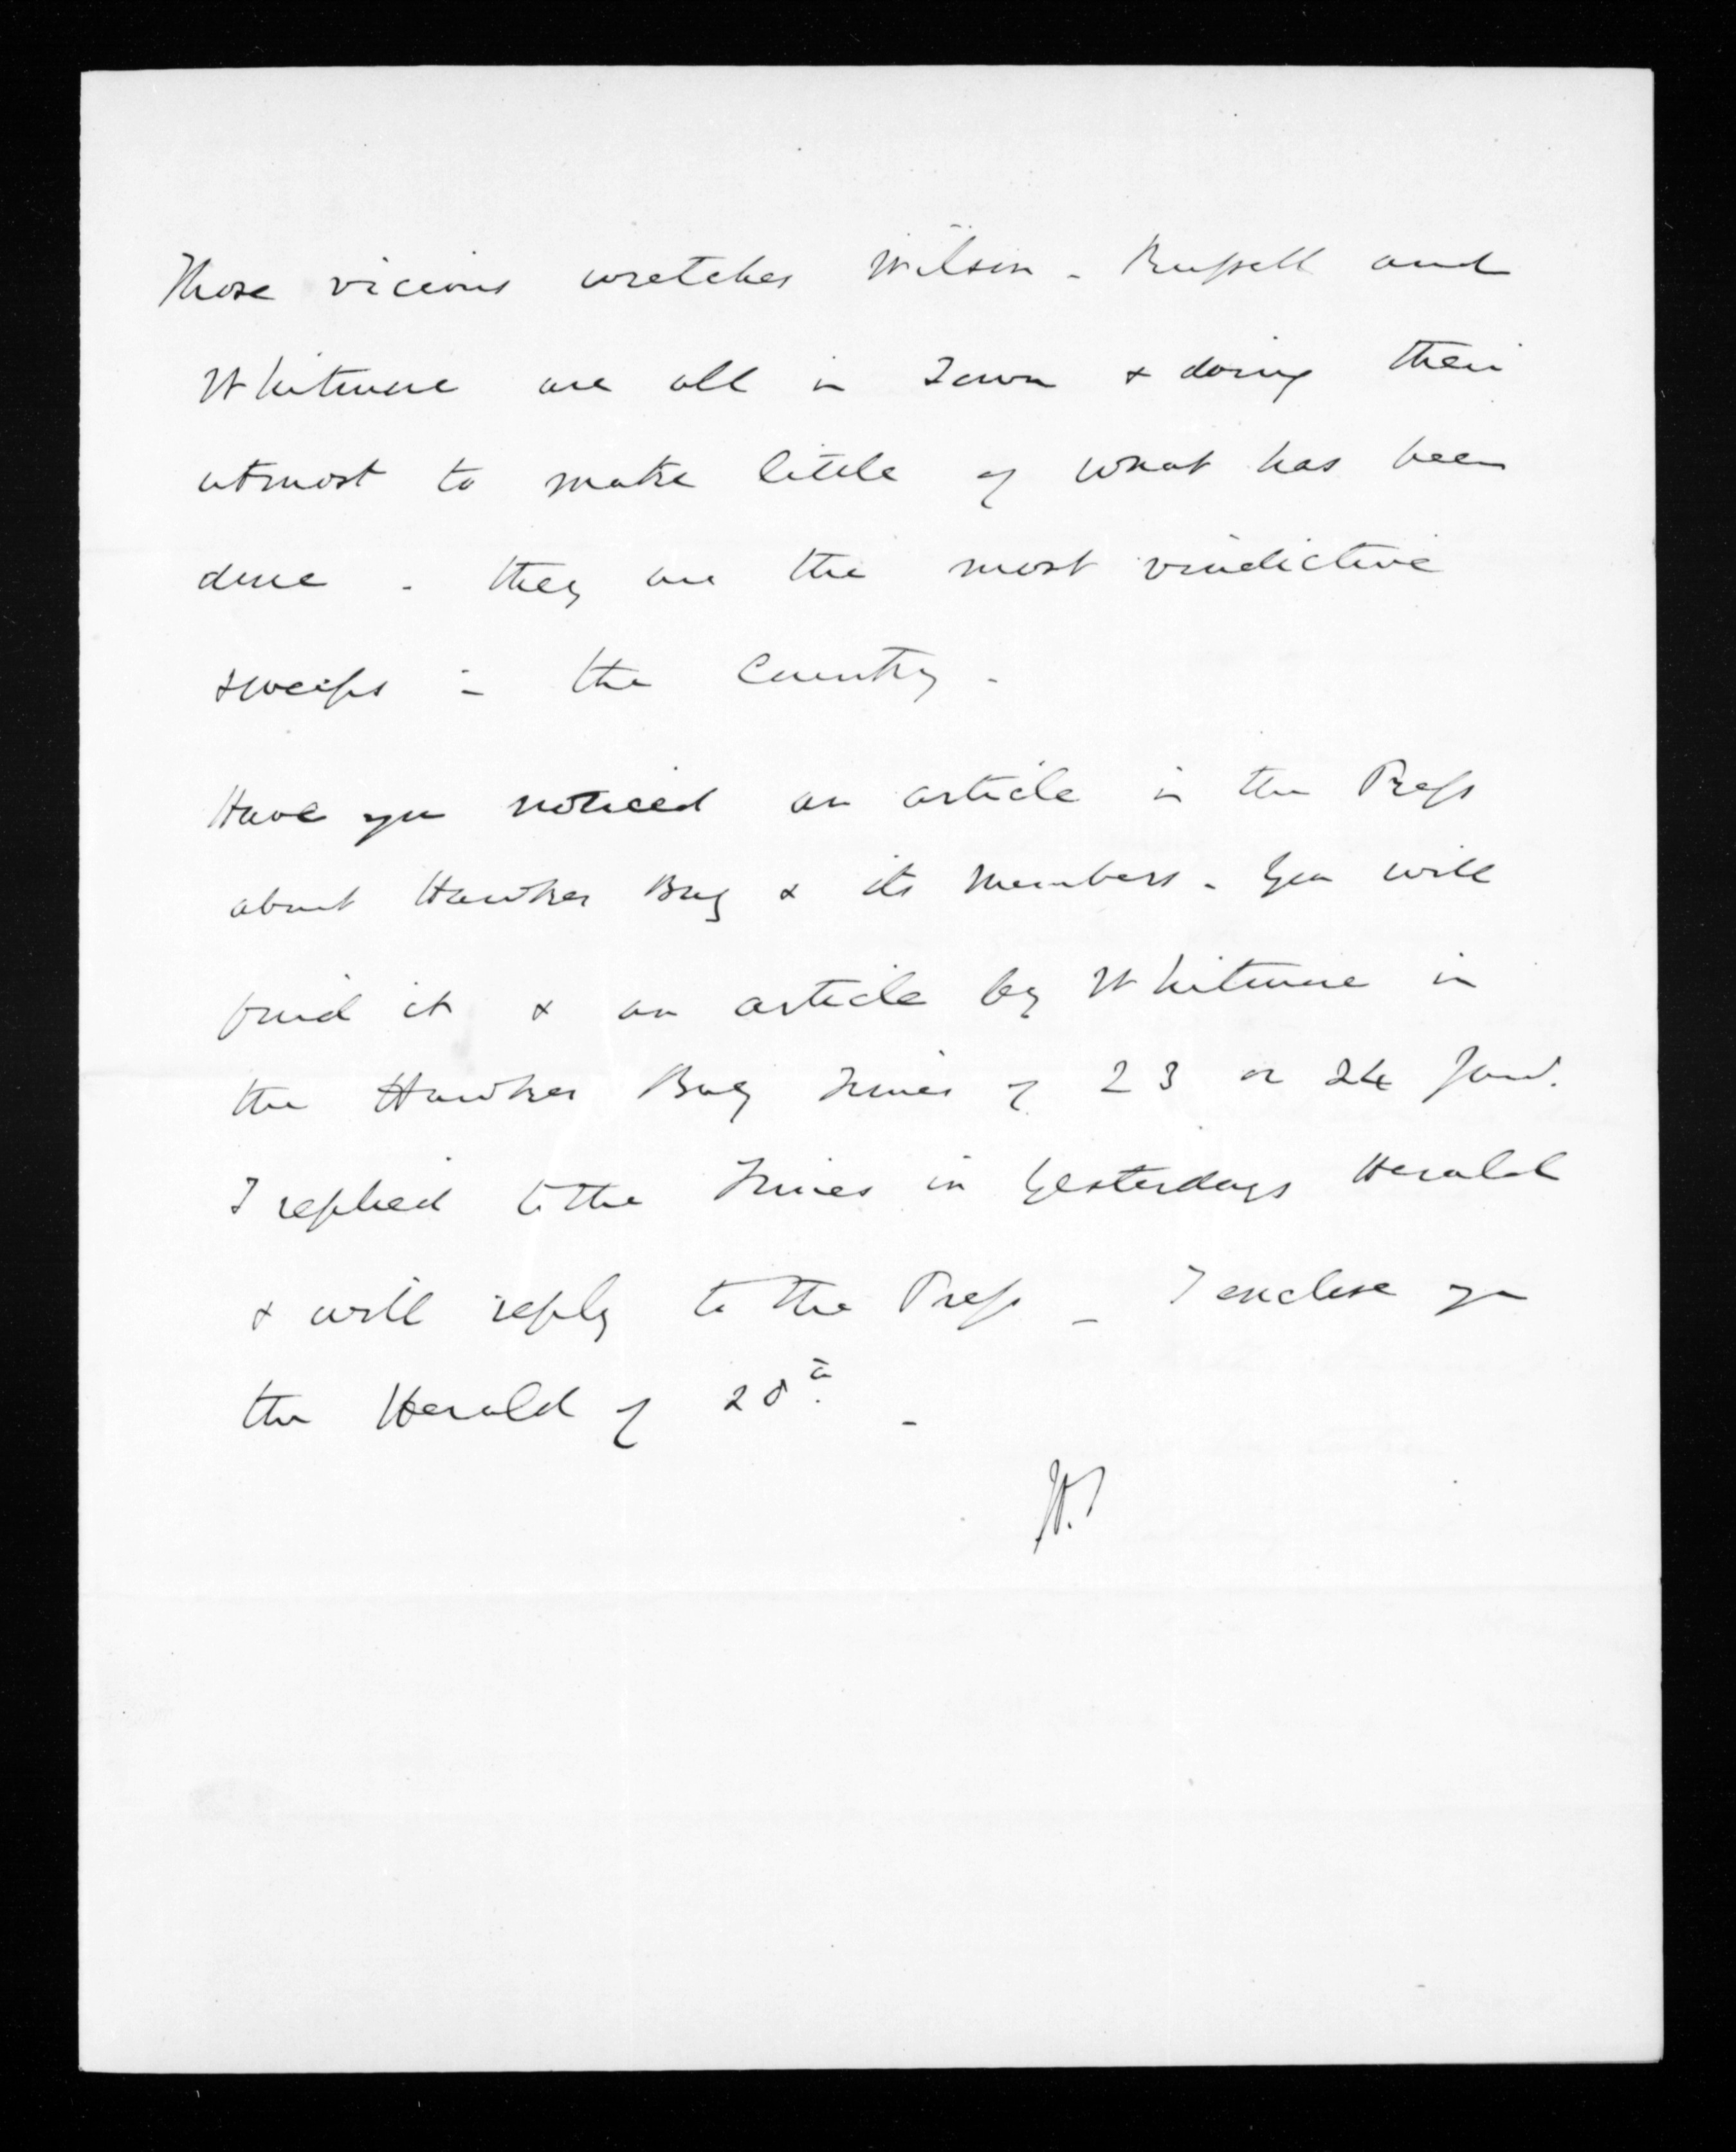 Those vicious wretches Wilson - Russell and
Whitmore are all in Town & doing their
utmost to make little of what has been
done - they are the most vindictive
sweeps in the Country -
Have you noticed an article in the Press
about Hawkes Bay & its Members - You will
find it & an article by Whitmore in
the Hawkes Bay Times of 23 or 24 Jany.
I replied to the Times in Yesterdays Herald
& will reply to the Press - I enclose you
the Herald of 28th -